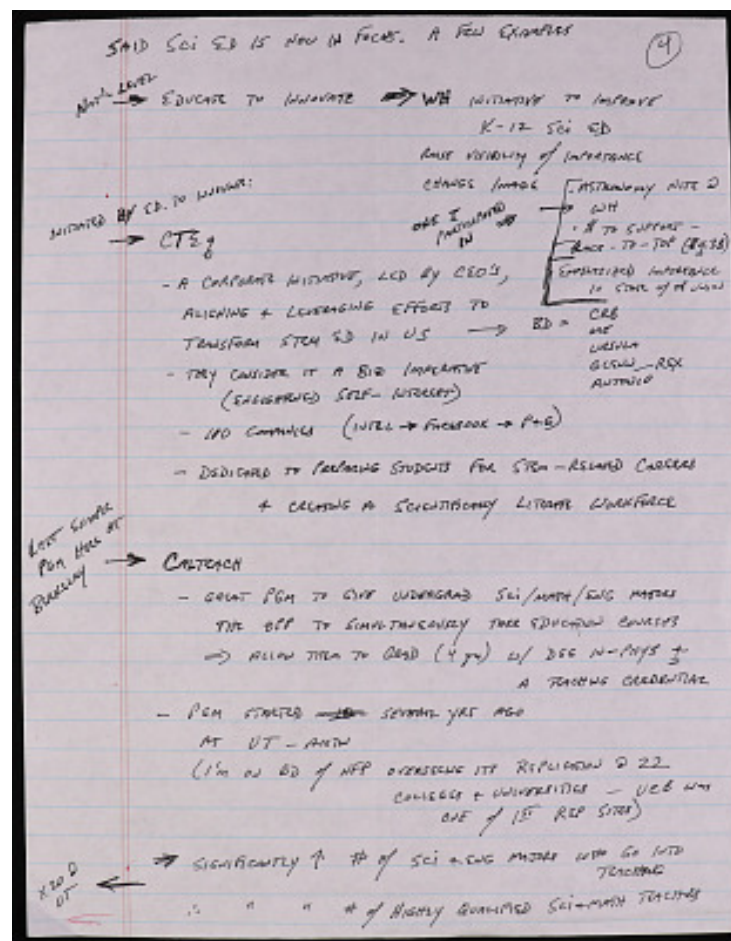 SAID SCI ED IS NOW IN FOCUS. A FEW EXAMPLES
4
NAT'L LEVEL
→ EDUCATE TO INNOVATE ⇒ WH INITIATIVE TO IMPROVE
K-12 SCI ED
RAISE VISIBILITY of IMPORTANCE
CHANGE IMAGE
ONE I PARTICIPATED IN →
ASTRONOMY NITE @ WH
• $ TO SUPPORT -
RACE-TO-TOP
EMPHASIZED IMPORTANCE
IN STATE of
INITIATED BY ED. TO INNOVATE:
→ CTEq
- A CORPORATE INITIATIVE, LED BY CEO'S,
ALIGNING + LEVERAGING EFFORTS TO
TRANSFORM STEM ED IN US → BD =
CRB
ME
URSULA
GLENN REX
ANTONIO
- THEY CONSIDER IT A BIZ IMPERATIVE
(ENLIGHTENED SELF-INTEREST)
- 110 COMPANIES (INTEL → FACEBOOK → P+G)
- DEDICATED TO PREPARING STUDENTS FOR STEM-RELATED CAREERS
+ CREATING A SCIENTIFICALLY LITERATE WORKFORCE
PGM HERE AT
BERKELEY
→ CALTEACH
- GREAT PGM TO GIVE UNDERGRAD SCI/MATH/ENG MAJORS
THE OPP TO SIMULTANEOUSLY TAKE EDUCATION COURSES
⇒ ALLOW THEM TO GRAD (4 yrs) w/ DEG IN PHYS +
A TEACHING CREDENTIAL
- PGM STARTED SEVERAL YRS AGO
AT UT-AUSTIN
(I'm ON BD of NFP OVERSEEING ITS REPLICATION @ 22
COLLEGES + UNIVERSITIES - UCB WAS
ONE of 1ST REP SITES)
⇒ SIGNIFICANTLY ↑ # of SCI + ENG MAJORS WHO GO INTO
TEACHING
X20 @
UT ←
∴ " " # of HIGHLY QUALIFIED SCI+MATH TEACHERS